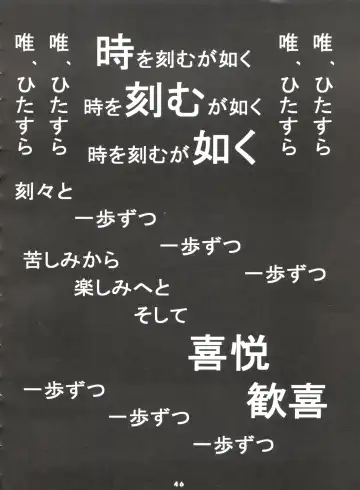 唯、ひたすら
唯、ひたすら
時を刻むが如く
時を刻むが如く
時を刻むが如く
唯、ひたすら
唯、ひたすら
刻々と
一歩ずつ
一歩ずつ
一歩ずつ
苦しみから
楽しみへと
そして
喜悦
歓喜
一歩ずつ
一歩ずつ
一歩ずつ
46